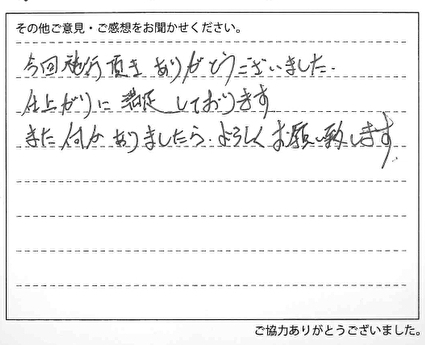 その他ご意見・ご感想をお聞かせください。
今回施行頂きありがとうございました.
仕上がりに満足しております
また何かありましたら.よろしくお願い致します.
ご協力ありがとうございました。